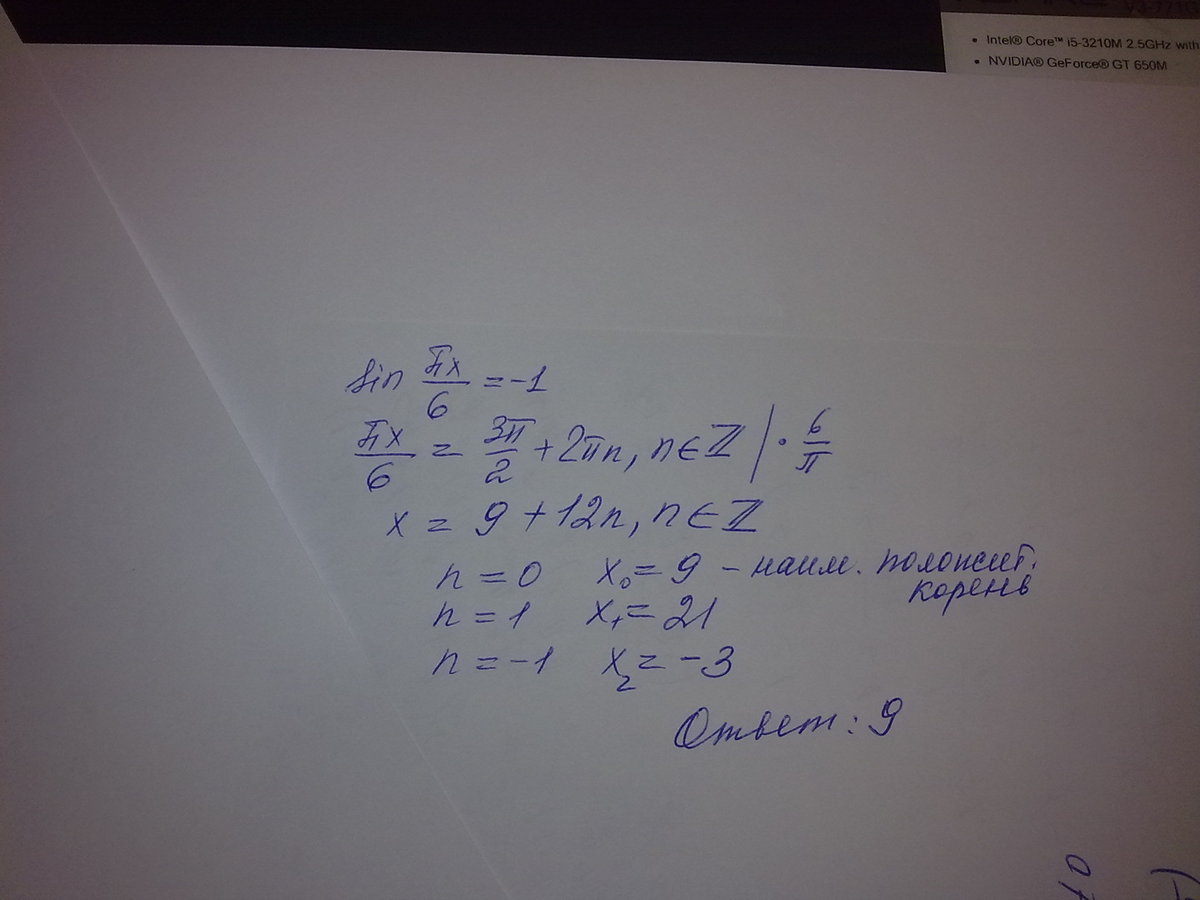 • Intel® Core™ i5-3210M 2.5GHz with
• NVIDIA® GeForce® GT 650M
sin πx/6 = -1
πx/6 = 3π/2 + 2πn, n ∈ ℤ | · 6/π
x = 9 + 12n, n ∈ ℤ
n = 0 x₀ = 9 - наим. положит.
корень
n = 1 x₁ = 21
n = -1 x₂ = -3
Ответ: 9